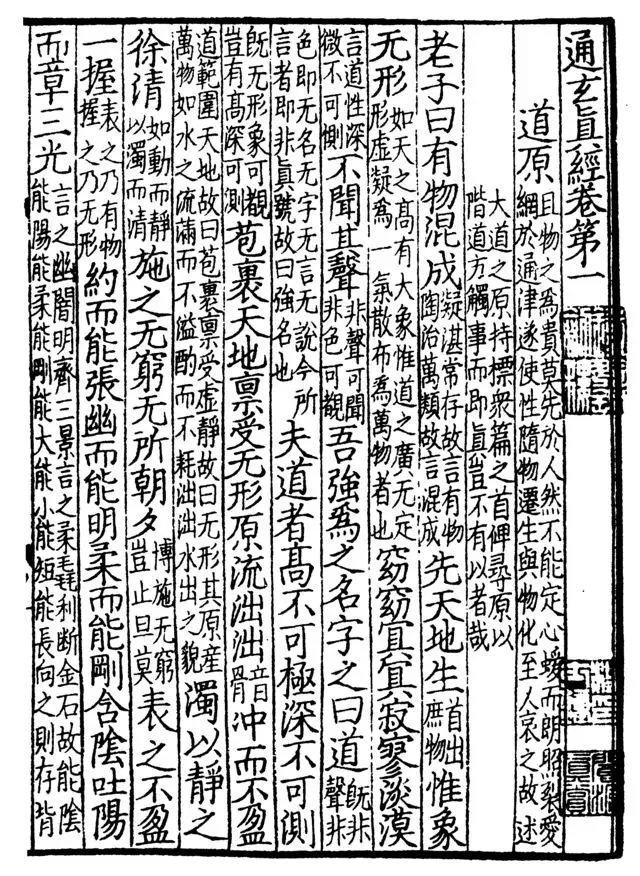 通玄眞經卷第一
道原且物之為貴莫先於人然不能定心蝯而朗照裂愛綱於通津遂使性隨物遷生與物化至人哀之故述
大道之原持標衆篇之首俾尋原以階道方觸事而即眞豈不有以者哉
老子曰有物混成凝湛常存故言有物陶冶萬類故言混成先天地生首出庶物惟象
无形如天之高有大象惟道之廣无定形虛凝為一氣散布為萬物者也窈窈冥冥寂寥淡漠
言道性深微不可測不聞其聲非聲可聞非色可觀吾強為之名字之曰道既非聲非
色即无名无字无言无說今所言者即非眞號故曰強名也夫道者高不可極深不可測
既无形象可觀豈有高深可測苞裹天地禀受无形原流泏泏音骨沖而不盈
道範圍天地故曰苞裹禀受虛靜故曰无形其原產萬物如水之流滿而不溢酌而不耗泏泏水出之貌濁以靜之
徐清如動而靜以濁而清施之无窮无所朝夕博施无窮豈止旦莫表之不盈
一握表之乃有物握之乃无形約而能張幽而能明柔而能剛含陰吐陽
而章三光言之幽闇明齊三景言之柔毳利斷金石故能陰能陽能柔能剛能大能小能短能長向之則存背